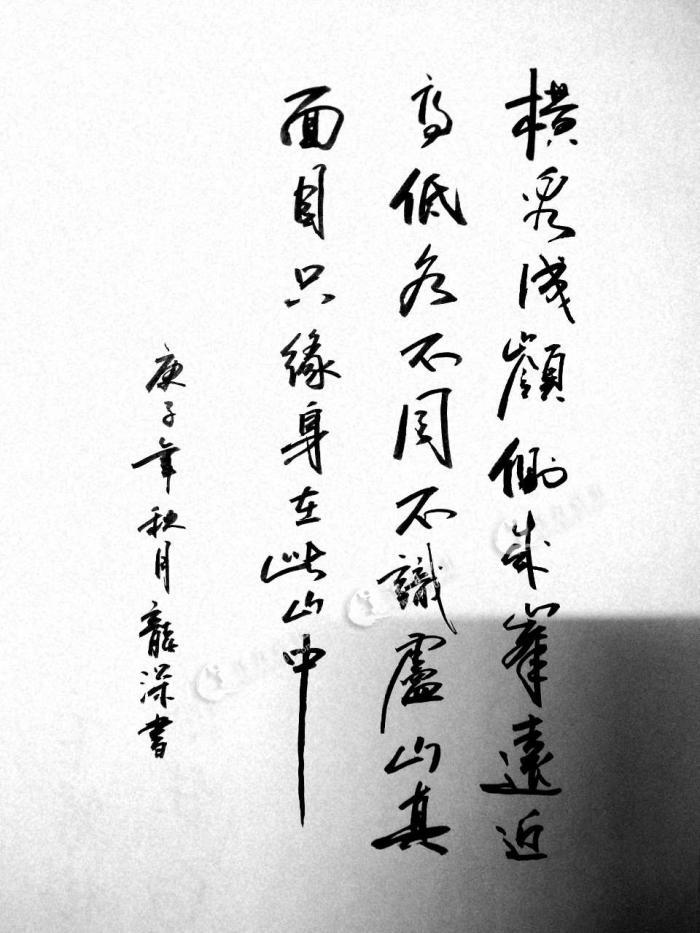 橫看成嶺側成峯遠近
高低各不同不識廬山真
面目只緣身在此山中
庚子年秋月龍深書